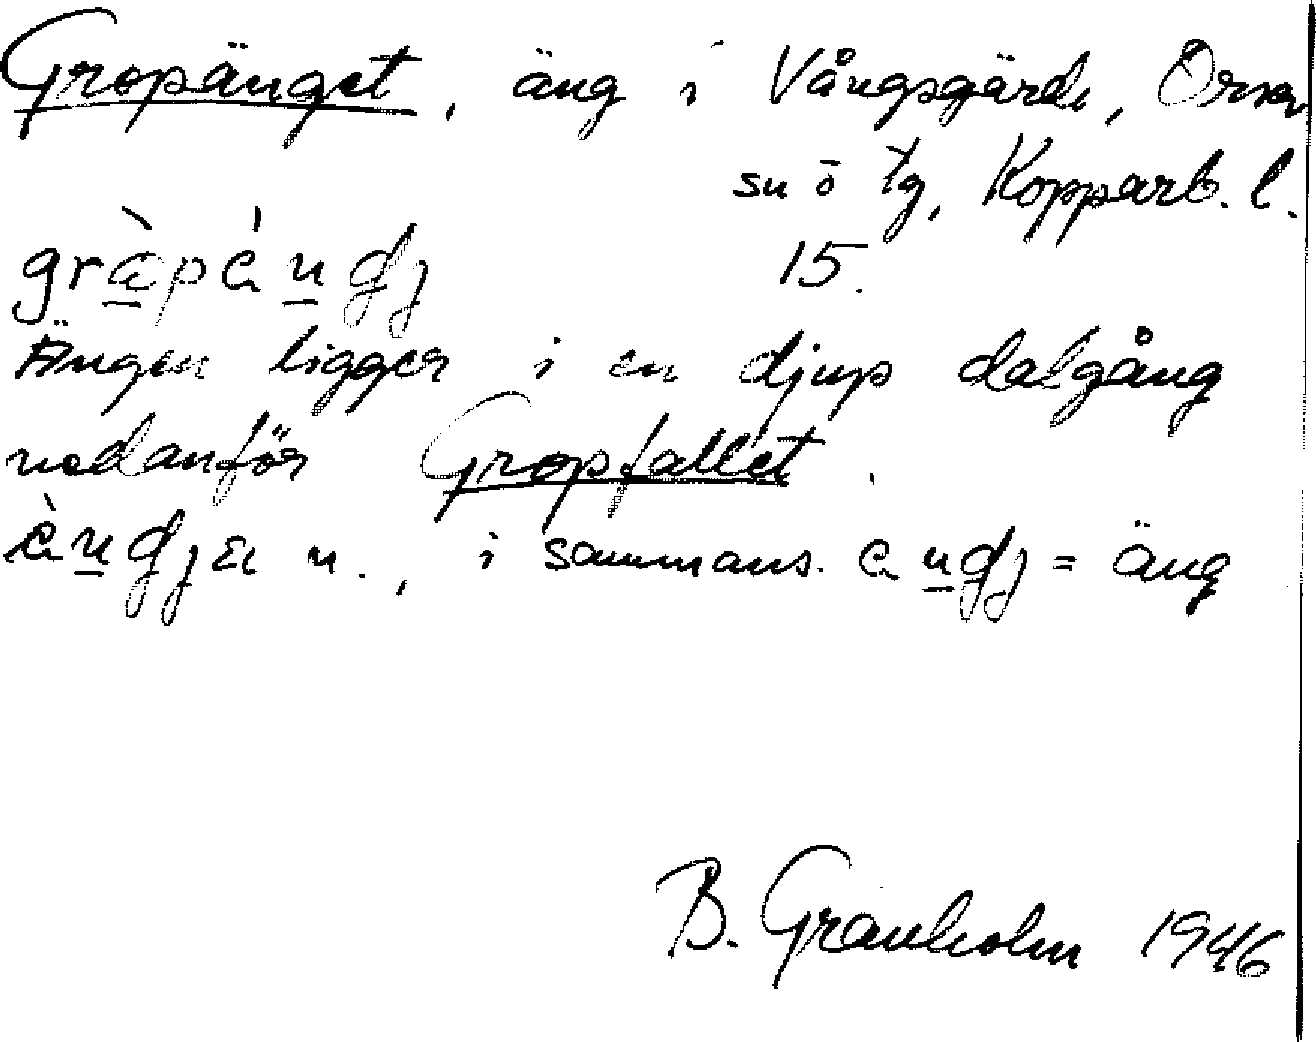 Gropänget, äng i Vångsgärde, Orsa
sn ö tg, Kopparb. l.
15.
Ängen ligger i en djup dalgång
nedanför Gropfallet.
n., i sammans. = äng
B. Granholm 1946